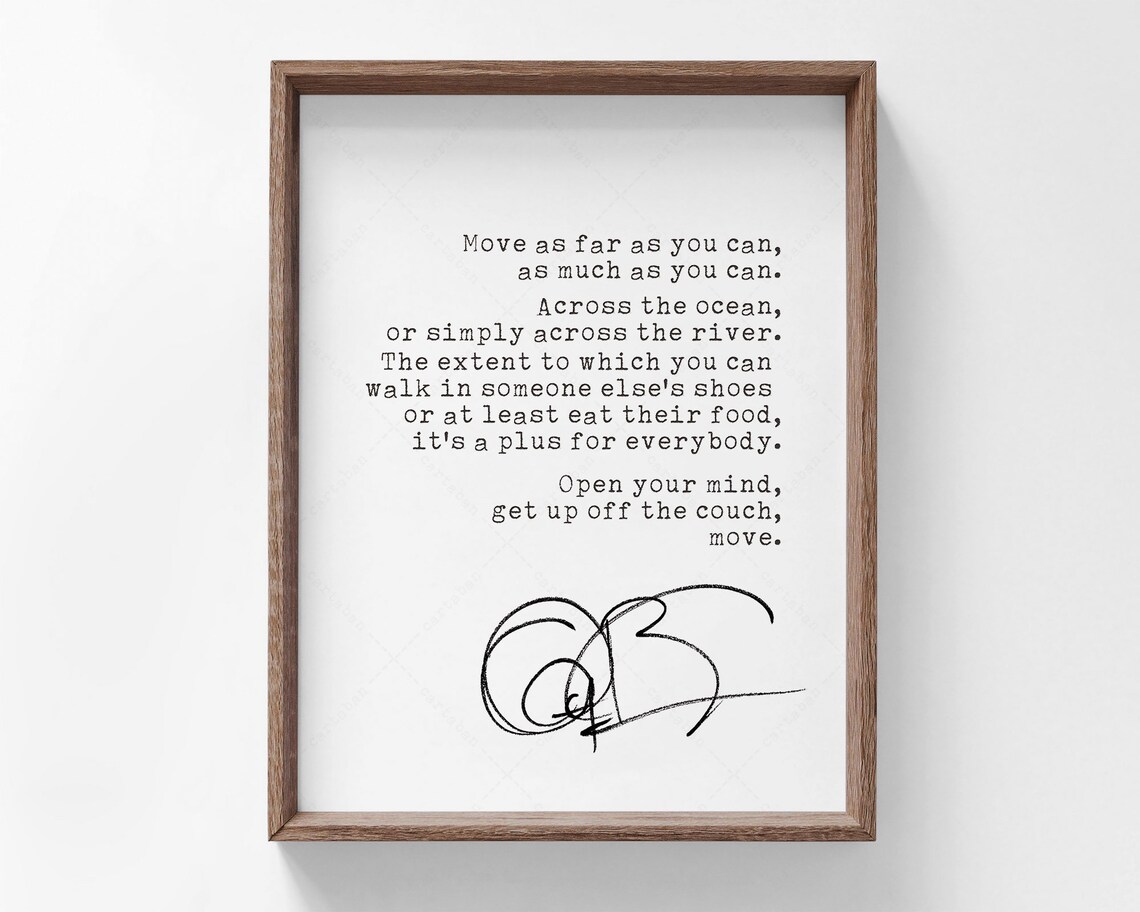 Move as far as you can,
as much as you can.
Across the ocean,
or simply across the river.
The extent to which you can
walk in someone else's shoes
or at least eat their food,
it's a plus for everybody.
Open your mind,
get up off the couch,
move.